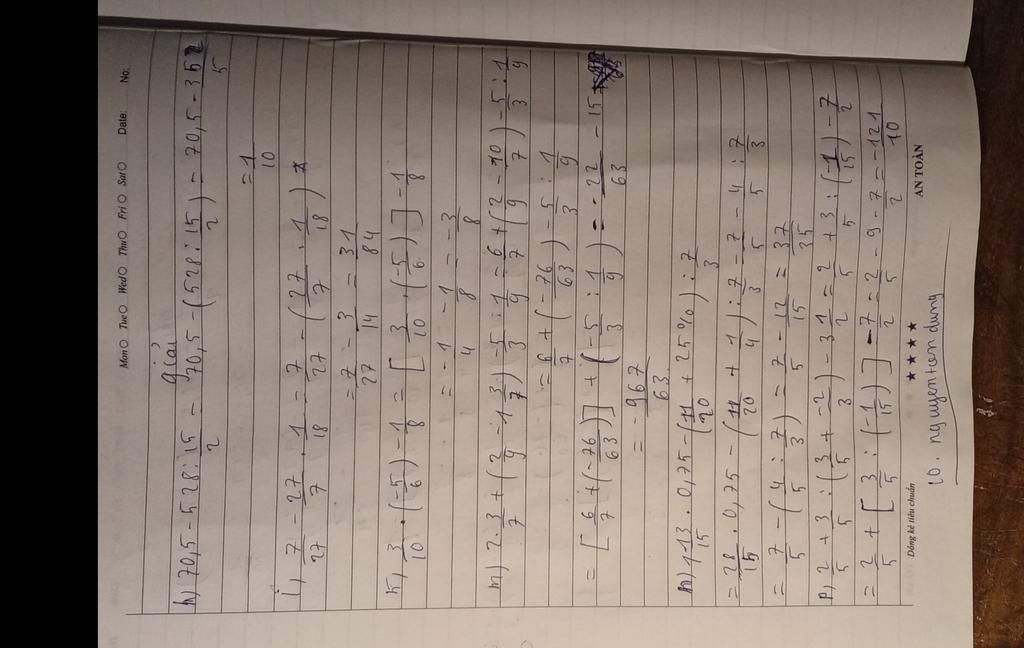 Mon○ Tue○ Wed○ Thu○ Fri○ Sat○ Date: No:
giải
h) 70,5 - 528 : 15/2 = 70,5 - (528 : 15/2) = 70,5 - 352/5
= 1/10
i) 7/27 - 27/7 . 1/18 = 7/27 - (27/7 . 1/18)
= 7/27 - 3/14 = 31/84
k) 3/10 . (-5/6) - 1/8 = [3/10 . (-5/6)] - 1/8
= -1/4 - 1/8 = -3/8
m) 2.3/7 + (2/9 - 1 3/7) - 5/3 : 1/9 = 6/7 + (2/9 - 10/7) - 5/3 : 1/9
= 6/7 + (-76/63) - 5/3 : 1/9
= [6/7 + (-76/63)] + (-5/3 : 1/9) = -22/63 - 15
= -967/63
n) 1 13/15 . 0,75 - (11/20 + 25%) : 7/3
= 28/15 . 0,75 - (11/20 + 1/4) : 7/3 = 7/5 - 4/5 : 7/3
= 7/5 - (4/5 : 7/3) = 7/5 - 12/15 = 37/35
p) 2/5 + 3/5 : (3/5 + -2/3) - 3 1/2 = 2/5 + 3/5 : (-1/15) - 7/2
= 2/5 + [3/5 : (-1/15)] - 7/2 = 2/5 - 9 - 7/2 = -121/10
Dòng kẻ tiêu chuẩn ★ ★ ★ ★ AN TOÀN
nguyen tan dung